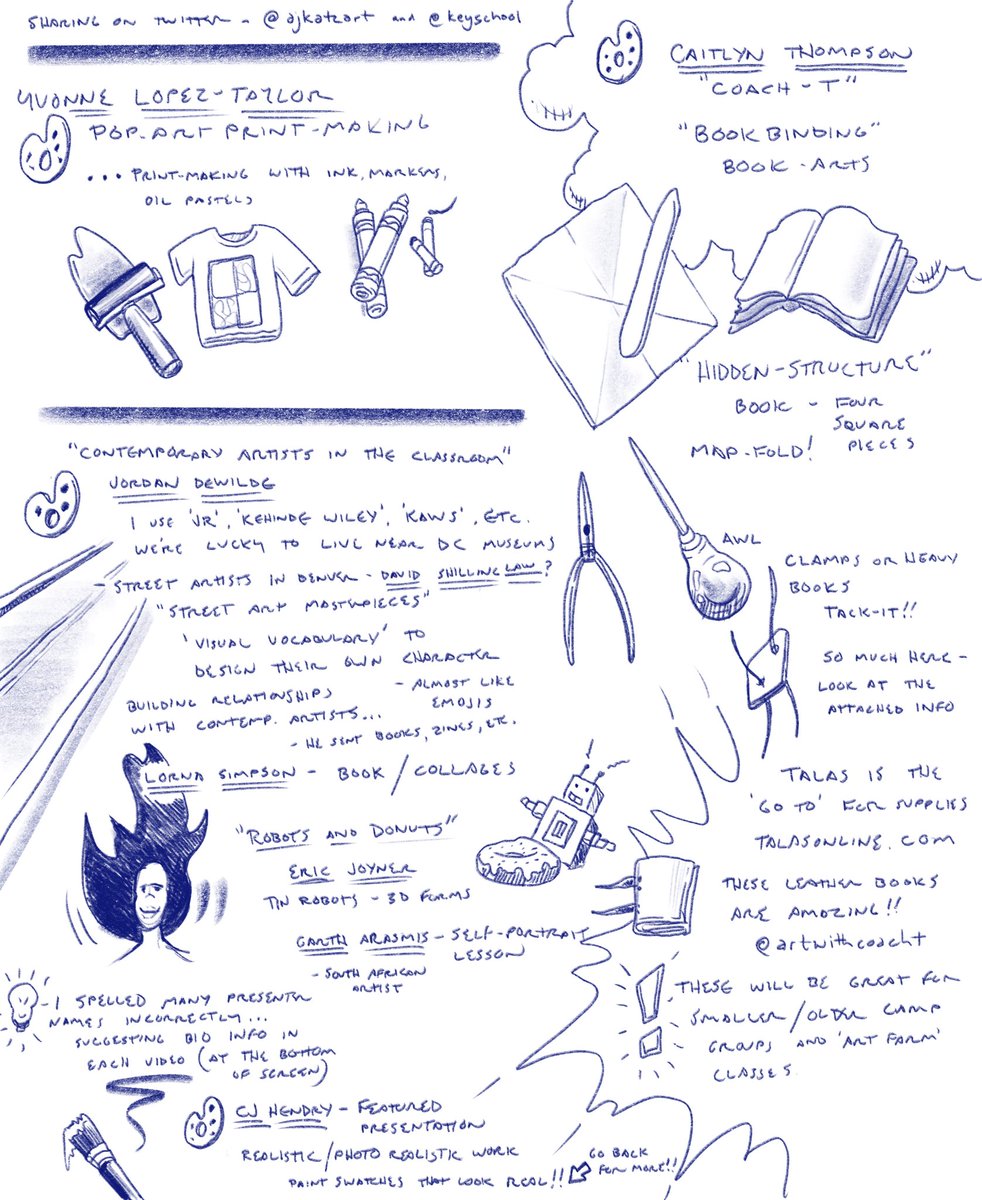 SHARING ON TWITTER - @ajkatzart and @keyschool
YVONNE LOPEZ-TAYLOR
POP-ART PRINT-MAKING
... PRINT-MAKING WITH INK, MARKERS,
OIL PASTELS
"CONTEMPORARY ARTISTS IN THE CLASSROOM"
JORDAN DEWILDE
I USE 'JR', 'KEHINDE WILEY', 'KAWS', ETC.
WE'RE LUCKY TO LIVE NEAR DC MUSEUMS
- STREET ARTISTS IN DENVER - DAVID SHILLING LAW?
"STREET ART MASTERPIECES"
'VISUAL VOCABULARY' TO
DESIGN THEIR OWN CHARACTER
- ALMOST LIKE
EMOJIS
BUILDING RELATIONSHIPS
WITH CONTEMP. ARTISTS...
- HE SENT BOOKS, ZINES, ETC.
LORNA SIMPSON - BOOK / COLLAGES
"ROBOTS AND DONUTS"
ERIC JOYNER
TIN ROBOTS - 3D FORMS
GARTH ARASMIS - SELF-PORTRAIT
LESSON
- SOUTH AFRICAN
ARTIST
- I SPELLED MANY PRESENTER
NAMES INCORRECTLY...
SUGGESTING BIO INFO IN
EACH VIDEO (AT THE BOTTOM
OF SCREEN)
CJ HENDRY - FEATURED
PRESENTATION
REALISTIC / PHOTO REALISTIC WORK
PAINT SWATCHES THAT LOOK REAL!!
GO BACK
FOR MORE!!
CAITLYN THOMPSON
"COACH-T"
"BOOK BINDING"
BOOK-ARTS
"HIDDEN-STRUCTURE"
BOOK - FOUR
SQUARE
PIECES
MAP-FOLD!
AWL
CLAMPS OR HEAVY
BOOKS
TACK-IT!!
SO MUCH HERE -
LOOK AT THE
ATTACHED INFO
TALAS IS THE
'GO TO' FOR SUPPLIES
TALASONLINE.COM
THESE LEATHER BOOKS
ARE AMAZING!!
@artwithcoacht
THESE WILL BE GREAT FOR
SMALLER / OLDER CAMP
GROUPS AND 'ART FARM'
CLASSES